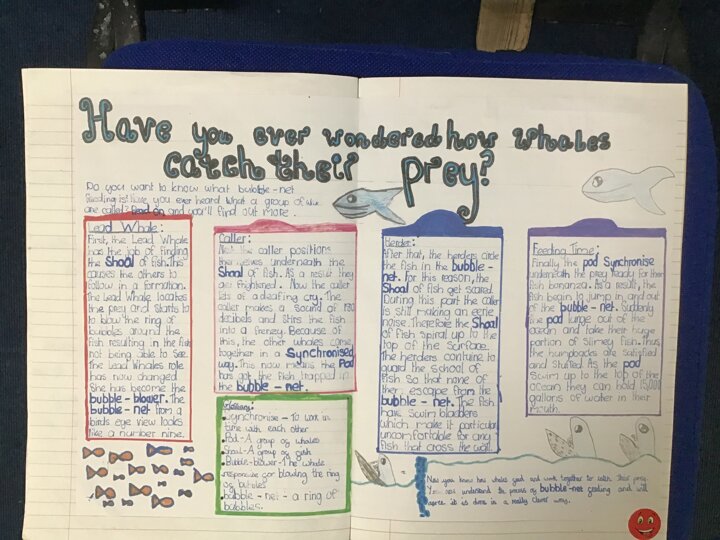 Have you ever wondered how whales
catch their prey?
Do you want to know what bubble-net
feeding is? Have you ever heard what a group of
are called? Read on and you'll find out more.
Lead Whale:
First, the Lead Whale
has the job of finding
the Shoal of fish. This
causes the others to
follow in a formation.
The Lead Whale locates
the prey and starts to
to blow the ring of
bubbles around the
fish resulting in the fish
not being able to see.
The Lead Whales role
has now changed
She has become the
bubble-blower. The
bubble-net from a
birds eye view looks
like a number nine.
Caller:
Next the caller positions
themselves underneath the
Shoal of fish. As a result they
get frightened. Now the caller
lets of a deafing cry. The
caller makes a sound of 180
decibels and stirs the fish
into a frenzy. Because of
this, the other whales come
together in a Synchronised
way. This now means the Pod
has got the fish trapped in
the bubble-net.
Glossary:
Synchronise - To work in
time with each other
Pod - A group of whales
Shoal - A group of fish
Bubble-blower - The whale
responsible for blowing the ring
of bubbles
bubble-net - a ring of
bubbles.
Herder:
After that, the herders circle
the fish in the bubble-
net. For this reason, the
Shoal of fish get scared.
During this part the caller
is still making an eerie
noise. Therefore the Shoal
of fish spiral up to the
top of the surface.
The herders contuine to
guard the school of
fish so that none of
them escape from the
bubble-net. The fish
have swim bladders
which make it particular
uncomfortable for any
fish that cross the wall.
Feeding Time:
Finally the pod Synchronise
underneath the prey ready for their
fish bonanza. As a result, the
fish begin to jump in and out
of the bubble-net. Suddenly
the pod lunge out of the
ocean and take their huge
portion of Slimey fish. Thus,
the humpbacks are satisfied
and stuffed. As the pod
Swim up to the top of the
ocean they can hold 15,000
gallons of water in their
mouth.
Now you know how whales feed and work together to catch their prey.
You now understand the process of bubble-net feeding and will
agree it is done in a really clever way.